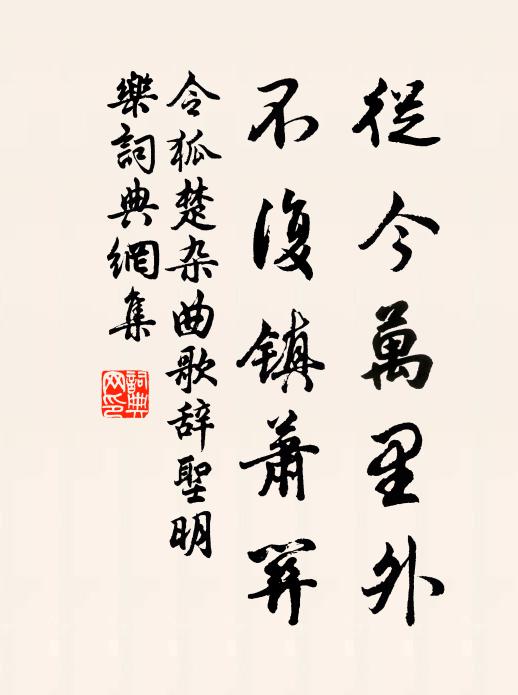 從今萬里外
不復鎮蕭關
令狐楚杂曲歌辞聖明
樂詞典網集
詞典
网印